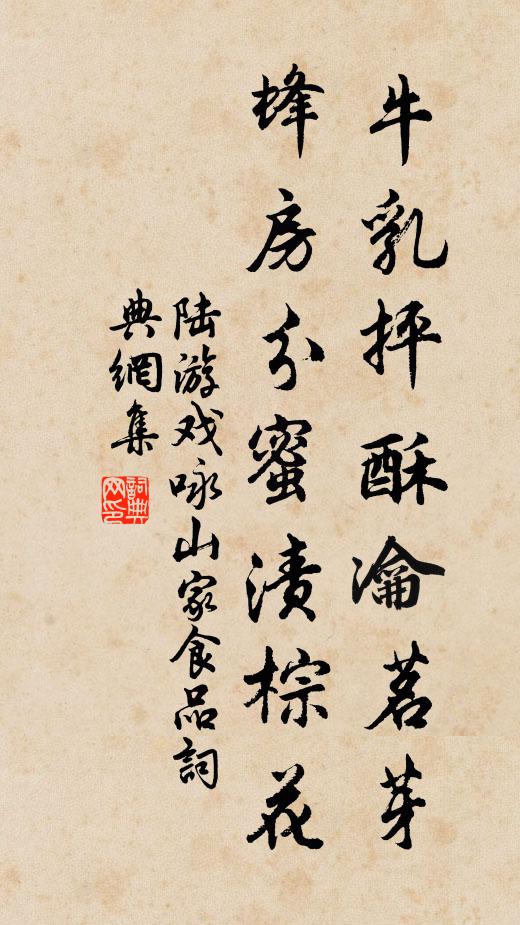 牛乳抨酥瀹茗芽
蜂房分蜜漬棕花
陆游戏咏山家食品詞
典網集
詞典
网印